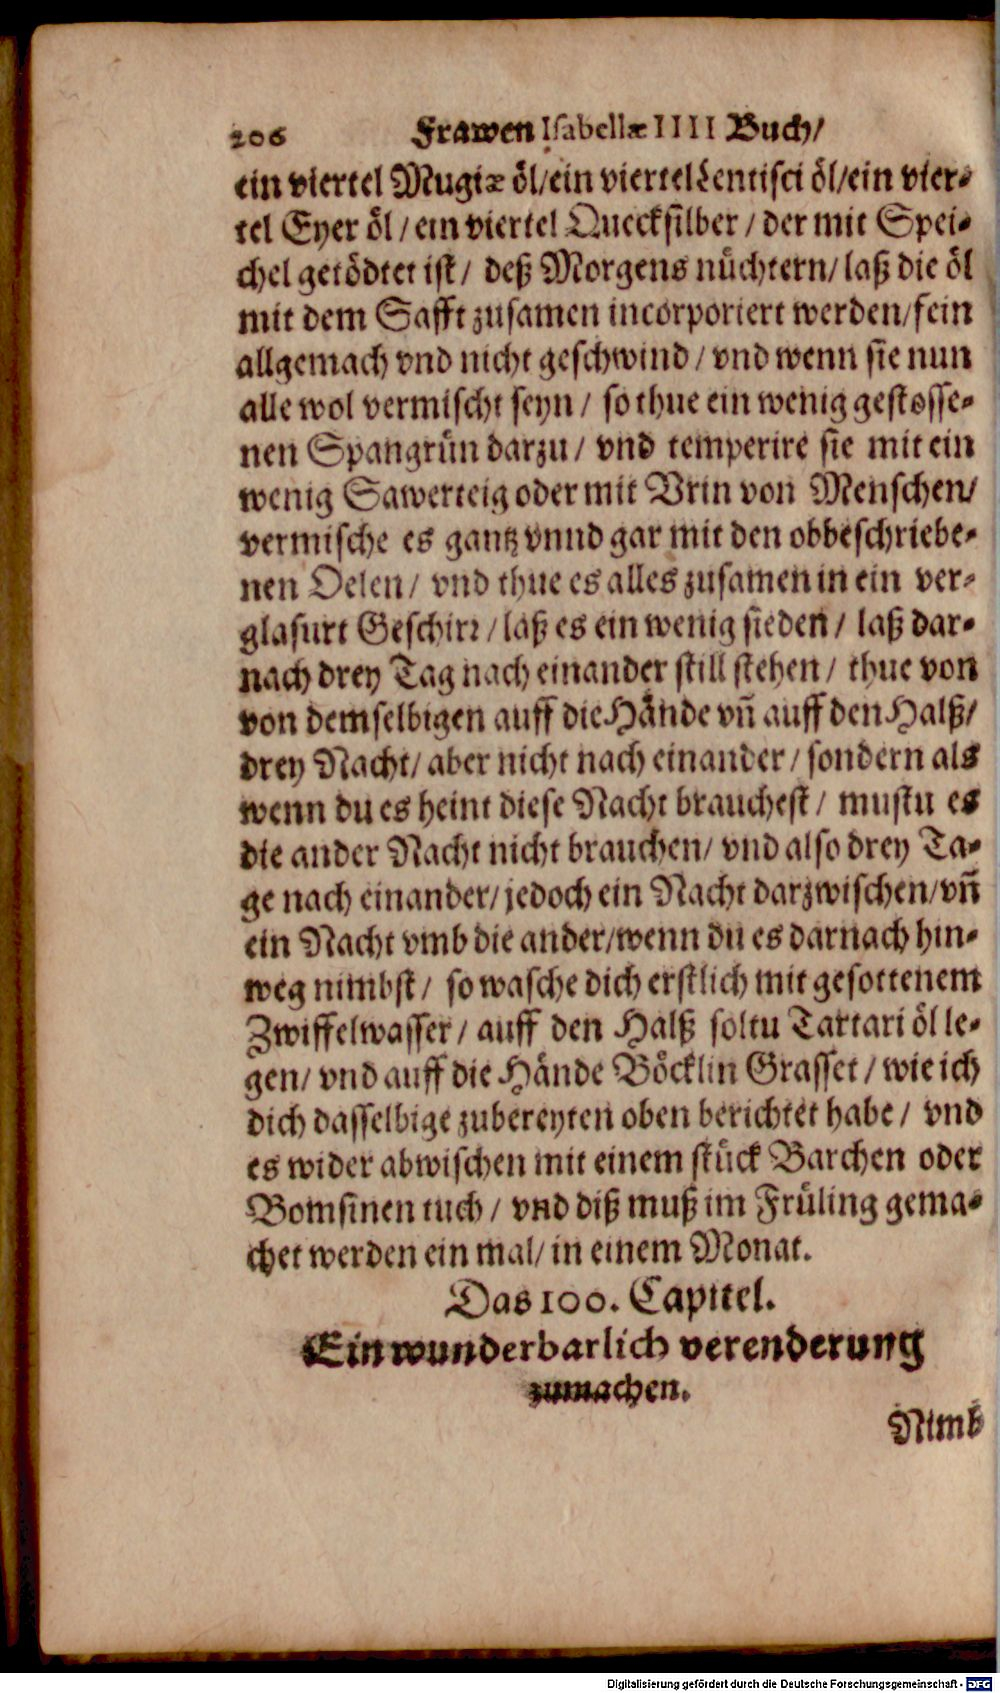 206 Frawen Isabellæ IIII Buch/
ein viertel Mugiæ öl/ein viertel Lentisci öl/ein vier-
tel Eyer öl/ ein viertel Quecksilber/ der mit Spei-
chel getödtet ist/ deß Morgens nüchtern/ laß die öl
mit dem Safft zusamen incorporiert werden/fein
allgemach vnd nicht geschwind/ vnd wenn sie nun
alle wol vermischt seyn/ so thue ein wenig gestosse-
nen Spangrün darzu/ vnd temperire sie mit ein
wenig Sawerteig oder mit Vrin von Menschen/
vermische es gantz vnnd gar mit den obbeschriebe-
nen Oelen/ vnd thue es alles zusamen in ein ver-
glasurt Geschirr/ laß es ein wenig sieden/ laß dar-
nach drey Tag nach einander still stehen/ thue von
von demselbigen auff die Hände vn̄ auff den Halß/
drey Nacht/ aber nicht nach einander/ sondern als
wenn du es heint diese Nacht brauchest/ mustu es
die ander Nacht nicht brauchen/ vnd also drey Ta-
ge nach einander/ jedoch ein Nacht darzwischen/vn̄
ein Nacht vmb die ander/wenn du es darnach hin-
weg nimbst/ so wasche dich erstlich mit gesottenem
Zwiffelwasser/ auff den Halß soltu Tartari öl le-
gen/ vnd auff die Hände Böcklin Grasset/ wie ich
dich dasselbige zubereyten oben berichtet habe/ vnd
es wider abwischen mit einem stück Barchen oder
Bomsinen tuch/ vnd diß muß im Früling gema-
chet werden ein mal/ in einem Monat.
Das 100. Capitel.
Ein wunderbarlich verenderung
zumachen.
Nimb
Digitalisierung gefördert durch die Deutsche Forschungsgemeinschaft - DFG